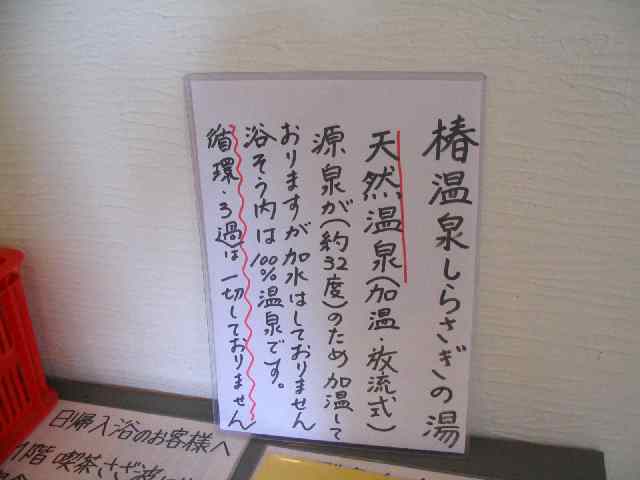 椿温泉しらさぎの湯
天然温泉(加温・放流式)
源泉が(約32度)のため加温して
おりますが加水はしておりません
浴そう内は100%温泉です。
循環・ろ過は一切しておりません
日帰入浴のお客様へ
1階 喫茶さざ波